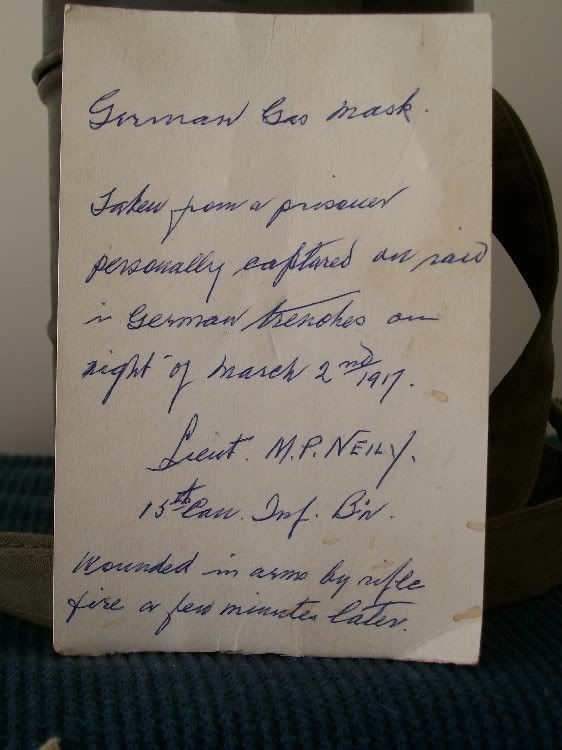 German Gas Mask.
Taken from a prisoner
personally captured on raid
in German trenches on
night of March 2nd 1917.
Lieut. M.P. NEILY.
15th Can. Inf. B'n.
Wounded in arms by rifle
fire a few minutes later.